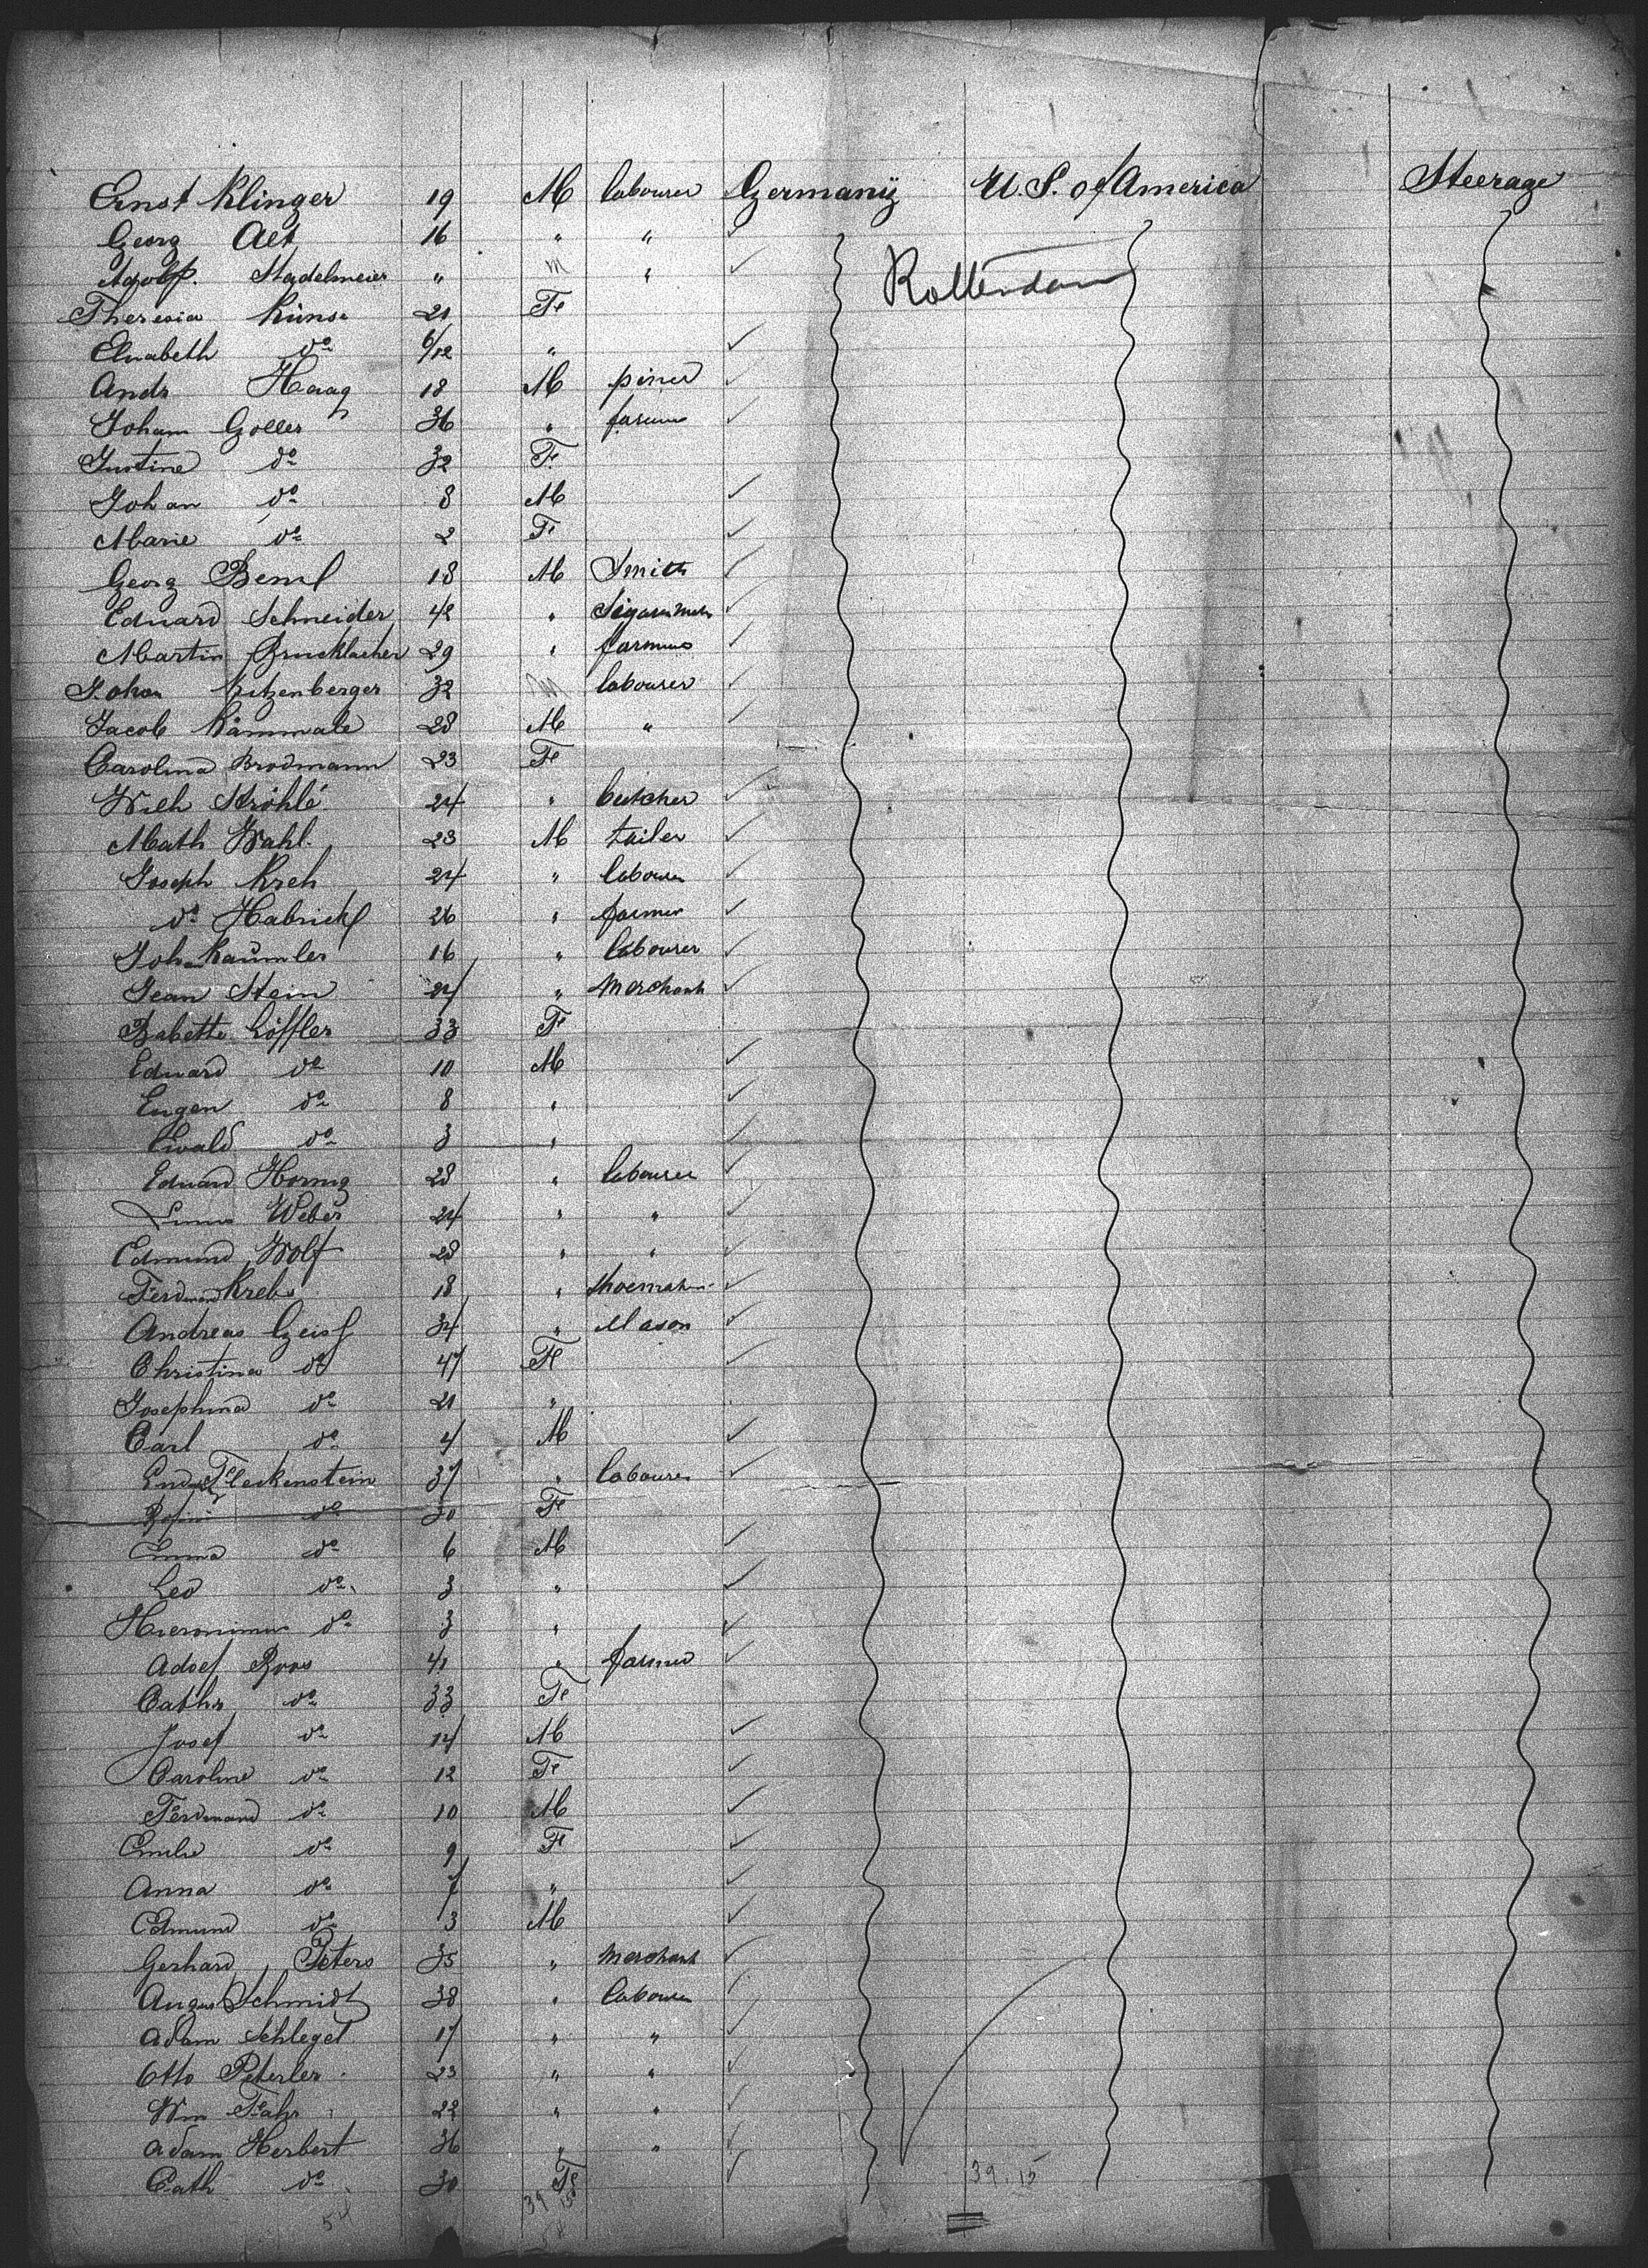 Ernst Klinger 19 M labourer Germany U. S. of America Steerage
Georg Alt 16 " "
Adolf. Stadelmeier " m " Rotterdam
Theresia 21 Fe
Elisabeth do 6/12 "
Andr Haag 18 M
Johann Goller 36 " farmer
Justine do 32 Fe
Johan do 8 M
Marie do 2 Fe
Georg 18 M Smith
Eduard Schneider 42 "
Martin Brucklacher 29 " farmer
Johan Kitzenberger 32 M labourer
Jacob Kämmale 28 M "
Carolina Brodmann 23 Fe
Wilh Ströhlé 24 " butcher
Math Wahl. 23 M tailer
Joseph Kreh 24 " labourer
do 26 " farmer
Joh Kaümler 16 " labourer
Jean Stein 24 " Merchant
Babette Löffler 33 Fe
Eduard do 10 M
Eugen do 8 "
Ewald do 3 "
Eduard Hornig 28 " labourer
Weber 24 " "
Edmund Wolf 28 " "
Ferdinand Krebs 18 "
Andreas Geis 34 " Mason
Christina do 47 Fe
Josephina do 21 "
Carl do 4 M
Fleckenstein 37 " labourer
do 30 Fe
Emma do 6 M
Leo do 3 "
Hieronimus do 3 "
Adolf Roos 41 " farmer
Cathr do 33 Fe
Josef do 14 M
Caroline do 12 Fe
Ferdinand do 10 M
Emilie do 9 Fe
Anna do 7 "
Edmund do 3 M
Gerhard Peters 35 " Merchant
August Schmidt 38 " labourer
Adam Schlegel 17 " "
Otto Peterler 23 " "
Wm Fahr 22 " "
Adam Herbert 36 " "
Cath do 30 Fe 39. 15
54 39 15
54